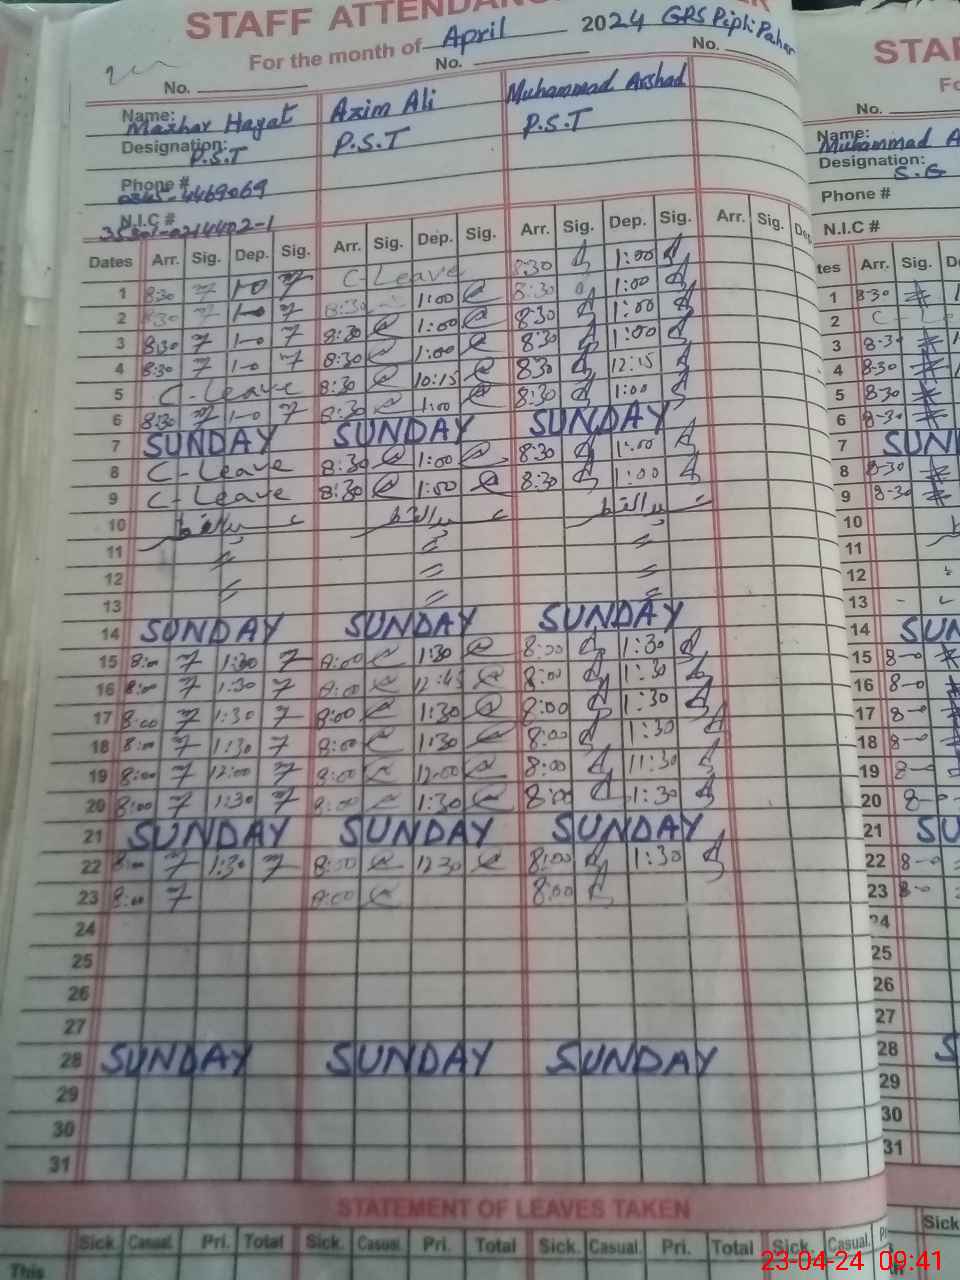 STAFF ATTENDANCE
For the month of April 2024 GPS Pipli Pahar
No. No. No.
Name: Mazhar Hayat Azim Ali Muhammad Arshad
Designation: P.S.T P.S.T P.S.T
Phone # 0345-4469069
N.I.C #
Dates Arr. Sig. Dep. Sig. Arr. Sig. Dep. Sig. Arr. Sig. Dep. Sig. Arr. Sig. Dep.
1 8:30 1-0 C-Leave 8:30 1:00
2 8:30 1-0 8:30 1:00 8:30 1:00
3 8:30 1-0 8:30 1:00 8:30 1:00
4 8:30 1-0 8:30 1:00 8:30 1:00
5 C-Leave 8:30 10:15 8:30 12:15
6 8:30 1-0 8:30 1:00 8:30 1:00
7 SUNDAY SUNDAY SUNDAY
8 C-Leave 8:30 1:00 8:30 1:00
9 C-Leave 8:30 1:00 8:30 1:00
10
11 〃 〃 〃
12
13 〃 〃 〃
14 SUNDAY SUNDAY SUNDAY
15 8:00 1:30 8:00 1:30 8:00 1:30
16 8:00 1:30 8:00 12:45 8:00 1:30
17 8:00 1:30 8:00 1:30 8:00 1:30
18 8:00 1:30 8:00 1:30 8:00 1:30
19 8:00 12:00 8:00 12:00 8:00 11:30
20 8:00 1:30 8:00 1:30 8:00 1:30
21 SUNDAY SUNDAY SUNDAY
22 8:00 1:30 8:00 12:30 8:00 1:30
23 8:00 8:00 8:00
24
25
26
27
28 SUNDAY SUNDAY SUNDAY
29
30
31
STATEMENT OF LEAVES TAKEN
Sick. Casual. Pri. Total Sick. Casual. Pri. Total Sick. Casual. Pri. Total Sick. Casual.
This
STAF
No.
Name: Muhammad A
Designation: S.G
Phone #
N.I.C #
tes Arr. Sig. D
1 8-30
2 C-Le
3 8-30
4 8-30
5 8-30
6 8-30
7 SUN
8 8-30
9 8-30
10
11
12
13
14 SUN
15 8-0
16 8-0
17 8-0
18 8-0
19 8-0
20 8-0
21 SU
22 8-0
23 8-0
24
25
26
27
28 S
29
30
31
Sick
23-04-24 09:41